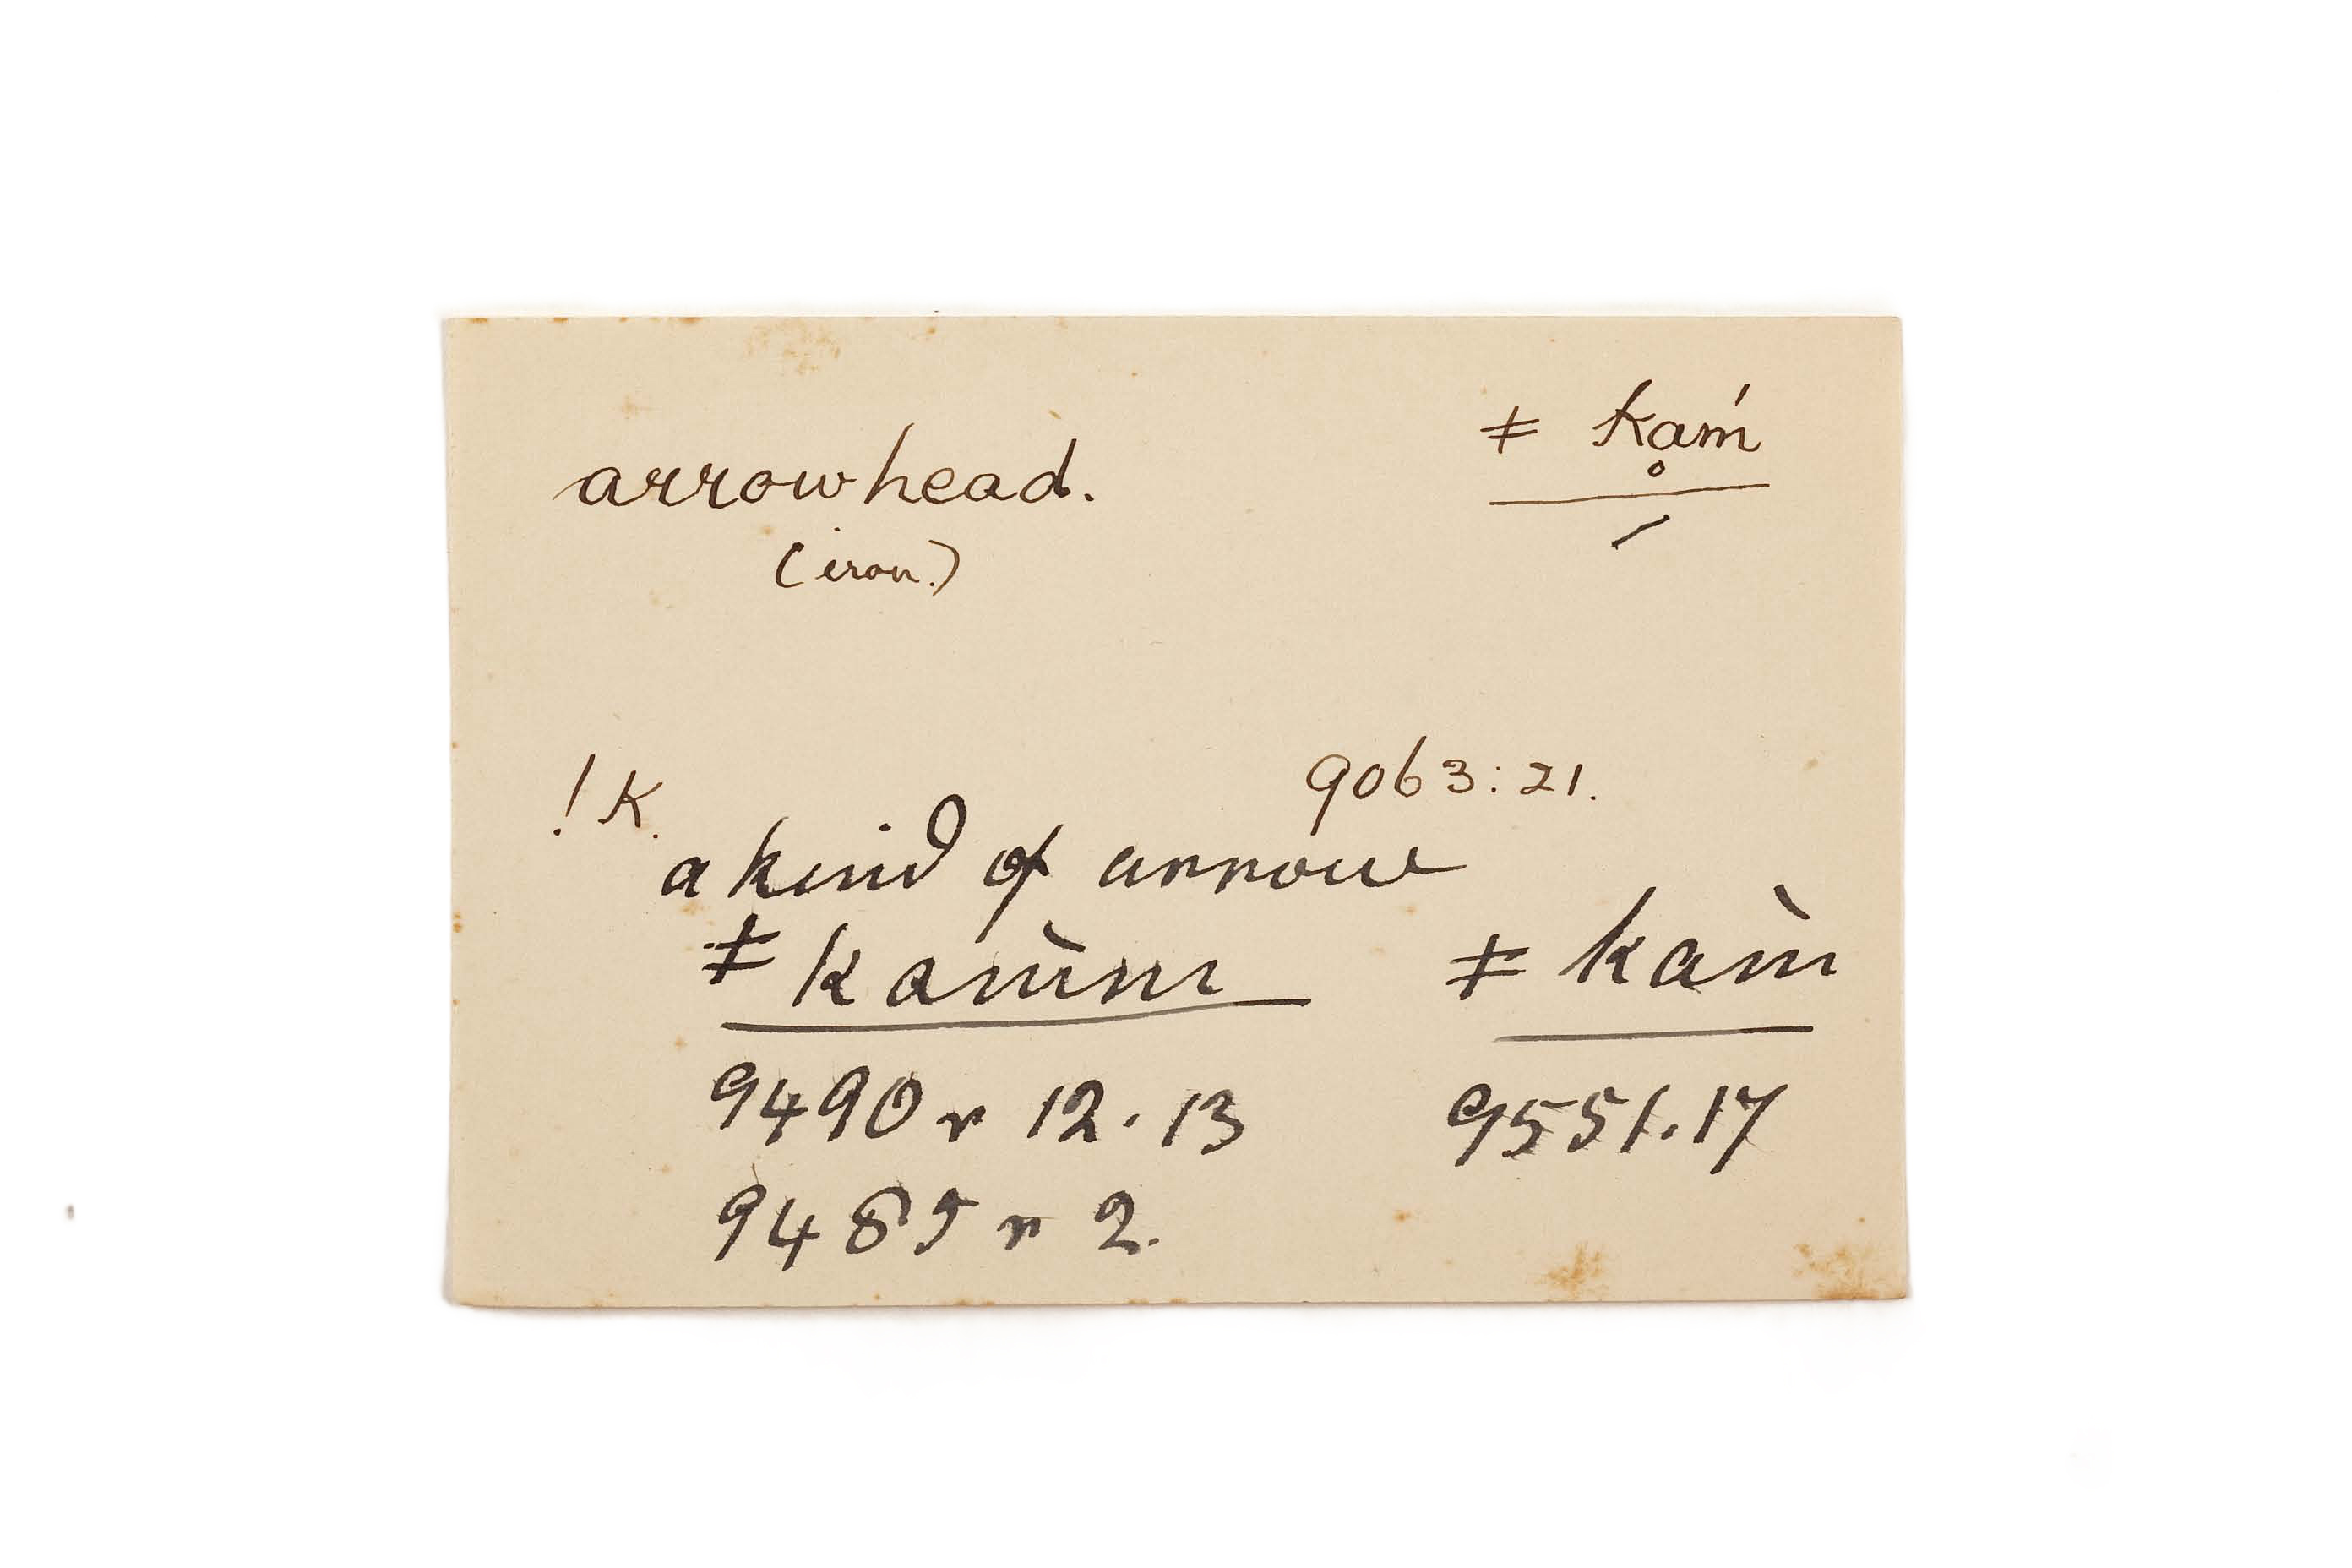 arrowhead. ǂ kḁḿ
(iron.)
! K. 9063:21.
a kind of arrow
ǂ kam̀m ǂ kam̀
9490 r 12. 13 9551. 17
9485 r 2.